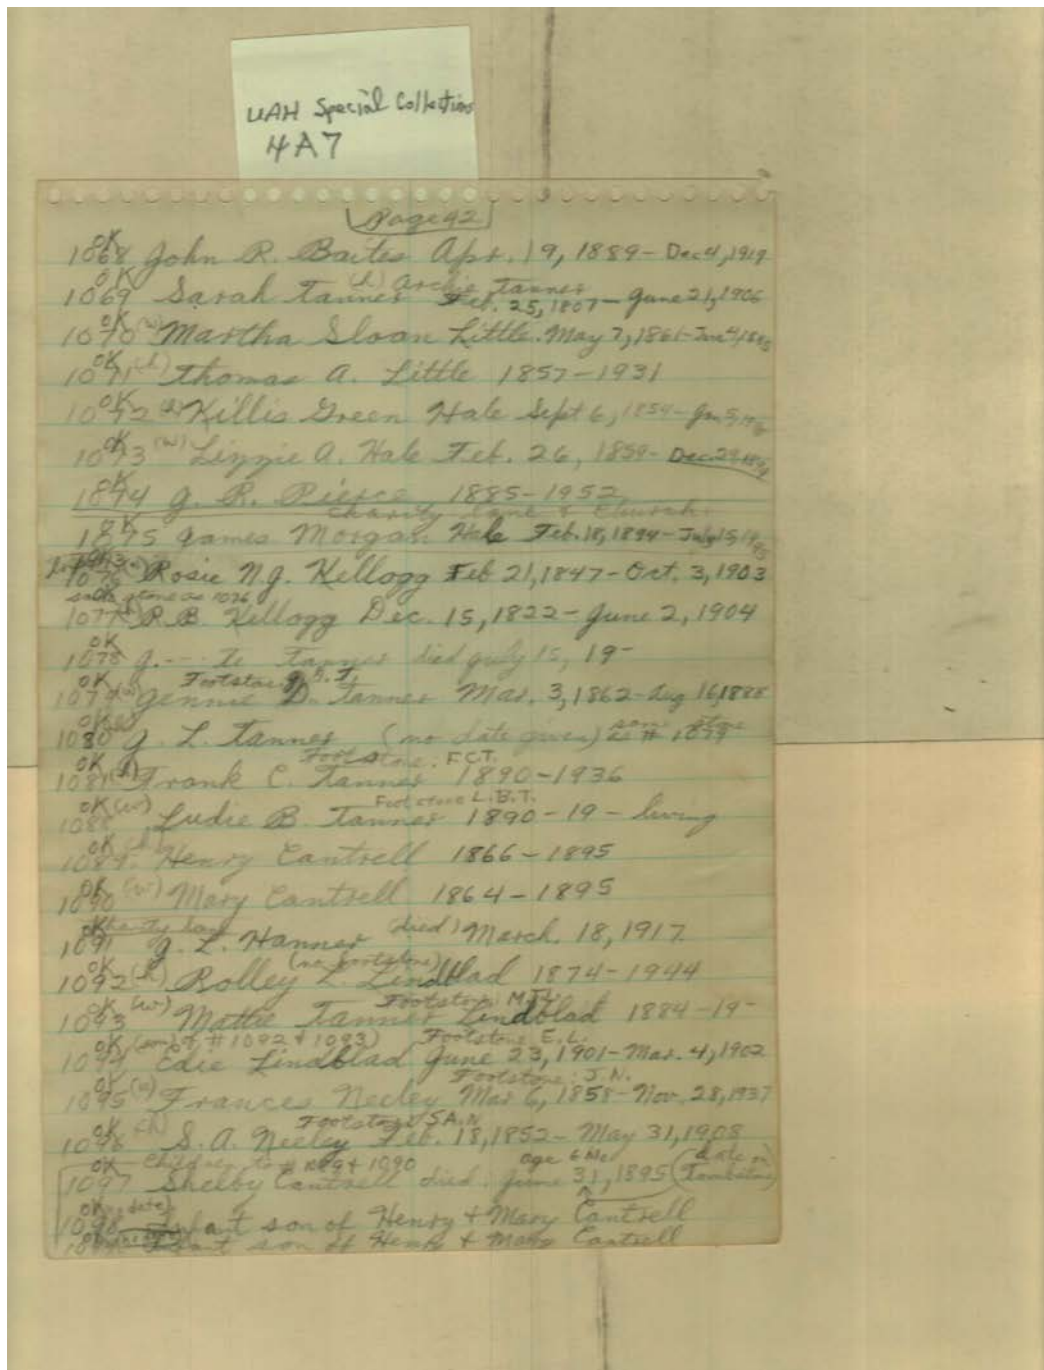 UAH Special Collections
4A7
Page 92
OK
1068 John R. Baites Apr. 19, 1889 - Dec 4, 1919
OK (h) Archie Tanner
1069 Sarah Tanner Feb. 25, 1807 - June 21, 1906
OK
1070 (w) Martha Sloan Little. May 7, 1861 -
OK
1071 (h) Thomas A. Little 1857-1931
OK
1072 (h) Killis Green Hale Sept 6, 1854 -
OK
1073 (w) Lizzie A. Hale Feb. 26, 1859 - Dec. 29,
OK
1874 J. R. Pierce 1885-1952
Charity Lane + Church
OK
1875 James Morgan Hale Feb. 18, 1894 - July 15,
1076 Rosie N.J. Kellogg Feb 21, 1847 - Oct. 3, 1903
same stone as 1076
1077 R.B. Kellogg Dec. 15, 1822 - June 2, 1904
OK
1078 J. --- Tanner died July 15, 19-
OK Footstone J. D. T.
1079 (w) Jennie D. Tanner Mar. 3, 1862 - Aug 16, 1888
OK (h)
1080 J. L. Tanner (no date given) same stone as # 1079
OK Footstone: F.C.T.
1081 (h) Frank C. Tanner 1890-1936
OK (w) Footstone L.B.T.
1088 Ludie B. Tanner 1890-19- living
OK (h)
1089. Henry Cantrell 1866-1895
OK
1090 (w) Mary Cantrell 1864-1895
OK Charity Lane
1091 J. L. Hanner (died) March. 18, 1917
OK (no footstone)
1092 (h) Rolley L. Lindblad 1874-1944
OK (w) Footstone: M.T.L.
1093 Mattie Tanner Lindblad 1884-19-
OK (son) of # 1092 + 1093) Footstone E.L.
1094 Edie Lindblad June 23, 1901 - Mar. 4, 1902
OK Footstone: J.N.
1095 (w) Frances Neeley Mar 6, 1858 - Nov. 28, 1937
OK (h) Footstone S.A.N.
1096 S.A. Neeley Feb. 18, 1852 - May 31, 1908
OK Children to # 1089 + 1090 age 6 Mo (date on
1097 Shelby Cantrell died: June 31, 1895 Tombstone)
OK no date)
1098 Infant son of Henry + Mary Cantrell
Infant son of Henry + Mary Cantrell